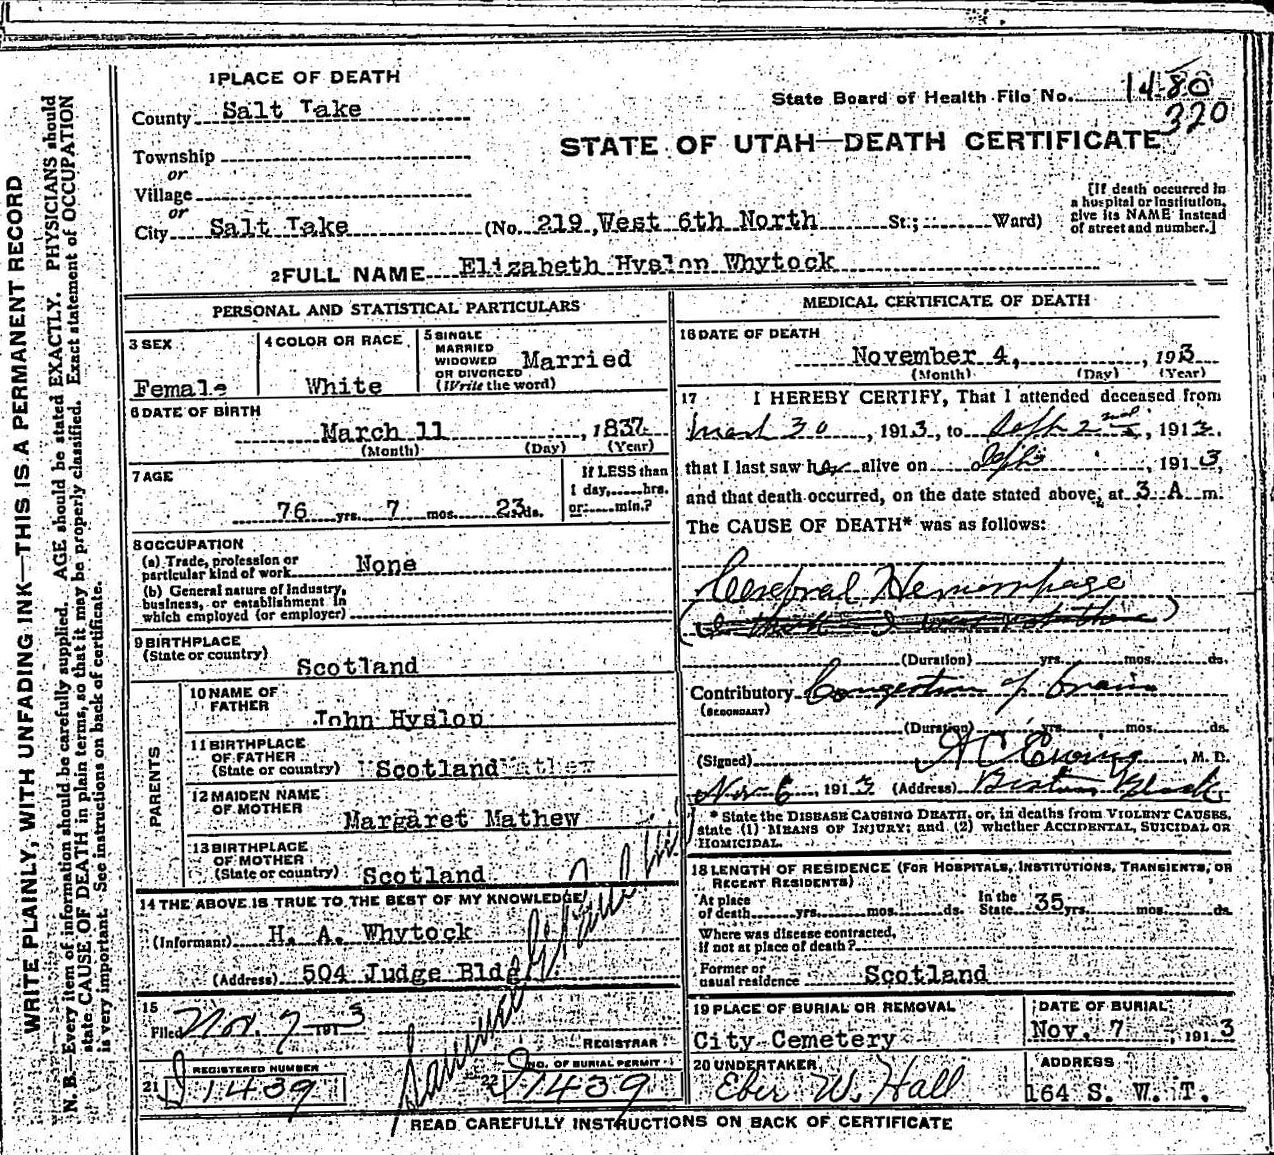 WRITE PLAINLY, WITH UNFADING INK—THIS IS A PERMANENT RECORD
N. B.—Every item of information should be carefully supplied. AGE should be stated EXACTLY. PHYSICIANS should
state CAUSE OF DEATH in plain terms, so that it may be properly classified. Exact statement of OCCUPATION
is very important. See instructions on back of certificate.
1 PLACE OF DEATH
County Salt Take
Township
or
Village
or
City Salt Take (No. 219 West 6th North St.; Ward)
State Board of Health File No. 1480
320
STATE OF UTAH—DEATH CERTIFICATE
[If death occurred in
a hospital or institution,
give its NAME instead
of street and number.]
2 FULL NAME Elizabeth Hyslop Whytock
PERSONAL AND STATISTICAL PARTICULARS
3 SEX
Female
4 COLOR OR RACE
White
5 SINGLE
MARRIED
WIDOWED
OR DIVORCED
(Write the word)
Married
6 DATE OF BIRTH
March 11, 1837
(Month) (Day) (Year)
7 AGE
76 yrs. 7 mos. 23 ds.
If LESS than
1 day, hrs.
or min.?
8 OCCUPATION
(a) Trade, profession or
particular kind of work None
(b) General nature of industry,
business, or establishment in
which employed (or employer)
9 BIRTHPLACE
(State or country)
Scotland
PARENTS
10 NAME OF
FATHER
John Hyslop
11 BIRTHPLACE
OF FATHER
(State or country) Scotland
12 MAIDEN NAME
OF MOTHER
Margaret Mathew
13 BIRTHPLACE
OF MOTHER
(State or country) Scotland
14 THE ABOVE IS TRUE TO THE BEST OF MY KNOWLEDGE
(Informant) H. A. Whytock
(Address) 504 Judge Bldg
15
Filed Nov. 7 1913
Samuel G. Paul
REGISTRAR
21 REGISTERED NUMBER
1439
22 NO. OF BURIAL PERMIT
1439
MEDICAL CERTIFICATE OF DEATH
16 DATE OF DEATH
November 4, 1913
(Month) (Day) (Year)
17 I HEREBY CERTIFY, That I attended deceased from
30, 1913, to Sept 2nd, 1913,
that I last saw her alive on Sept, 1913,
and that death occurred, on the date stated above, at 3 A m.
The CAUSE OF DEATH* was as follows:
Cerebral Hemorrhage
(Duration) yrs. mos. ds.
Contributory Congestion of brain
(SECONDARY)
(Duration) yrs. mos. ds.
(Signed) A C Ewing, M. D.
Nov 6, 1913 (Address)
* State the DISEASE CAUSING DEATH, or, in deaths from VIOLENT CAUSES,
state (1) MEANS OF INJURY; and (2) whether ACCIDENTAL, SUICIDAL OR
HOMICIDAL.
18 LENGTH OF RESIDENCE (FOR HOSPITALS, INSTITUTIONS, TRANSIENTS, OR
RECENT RESIDENTS)
At place
of death yrs. mos. ds.
In the
State 35 yrs. mos. ds.
Where was disease contracted,
if not at place of death?
Former or
usual residence Scotland
19 PLACE OF BURIAL OR REMOVAL
City Cemetery
DATE OF BURIAL
Nov. 7, 1913
20 UNDERTAKER
Eber W. Hall
ADDRESS
164 S. W. T.
READ CAREFULLY INSTRUCTIONS ON BACK OF CERTIFICATE